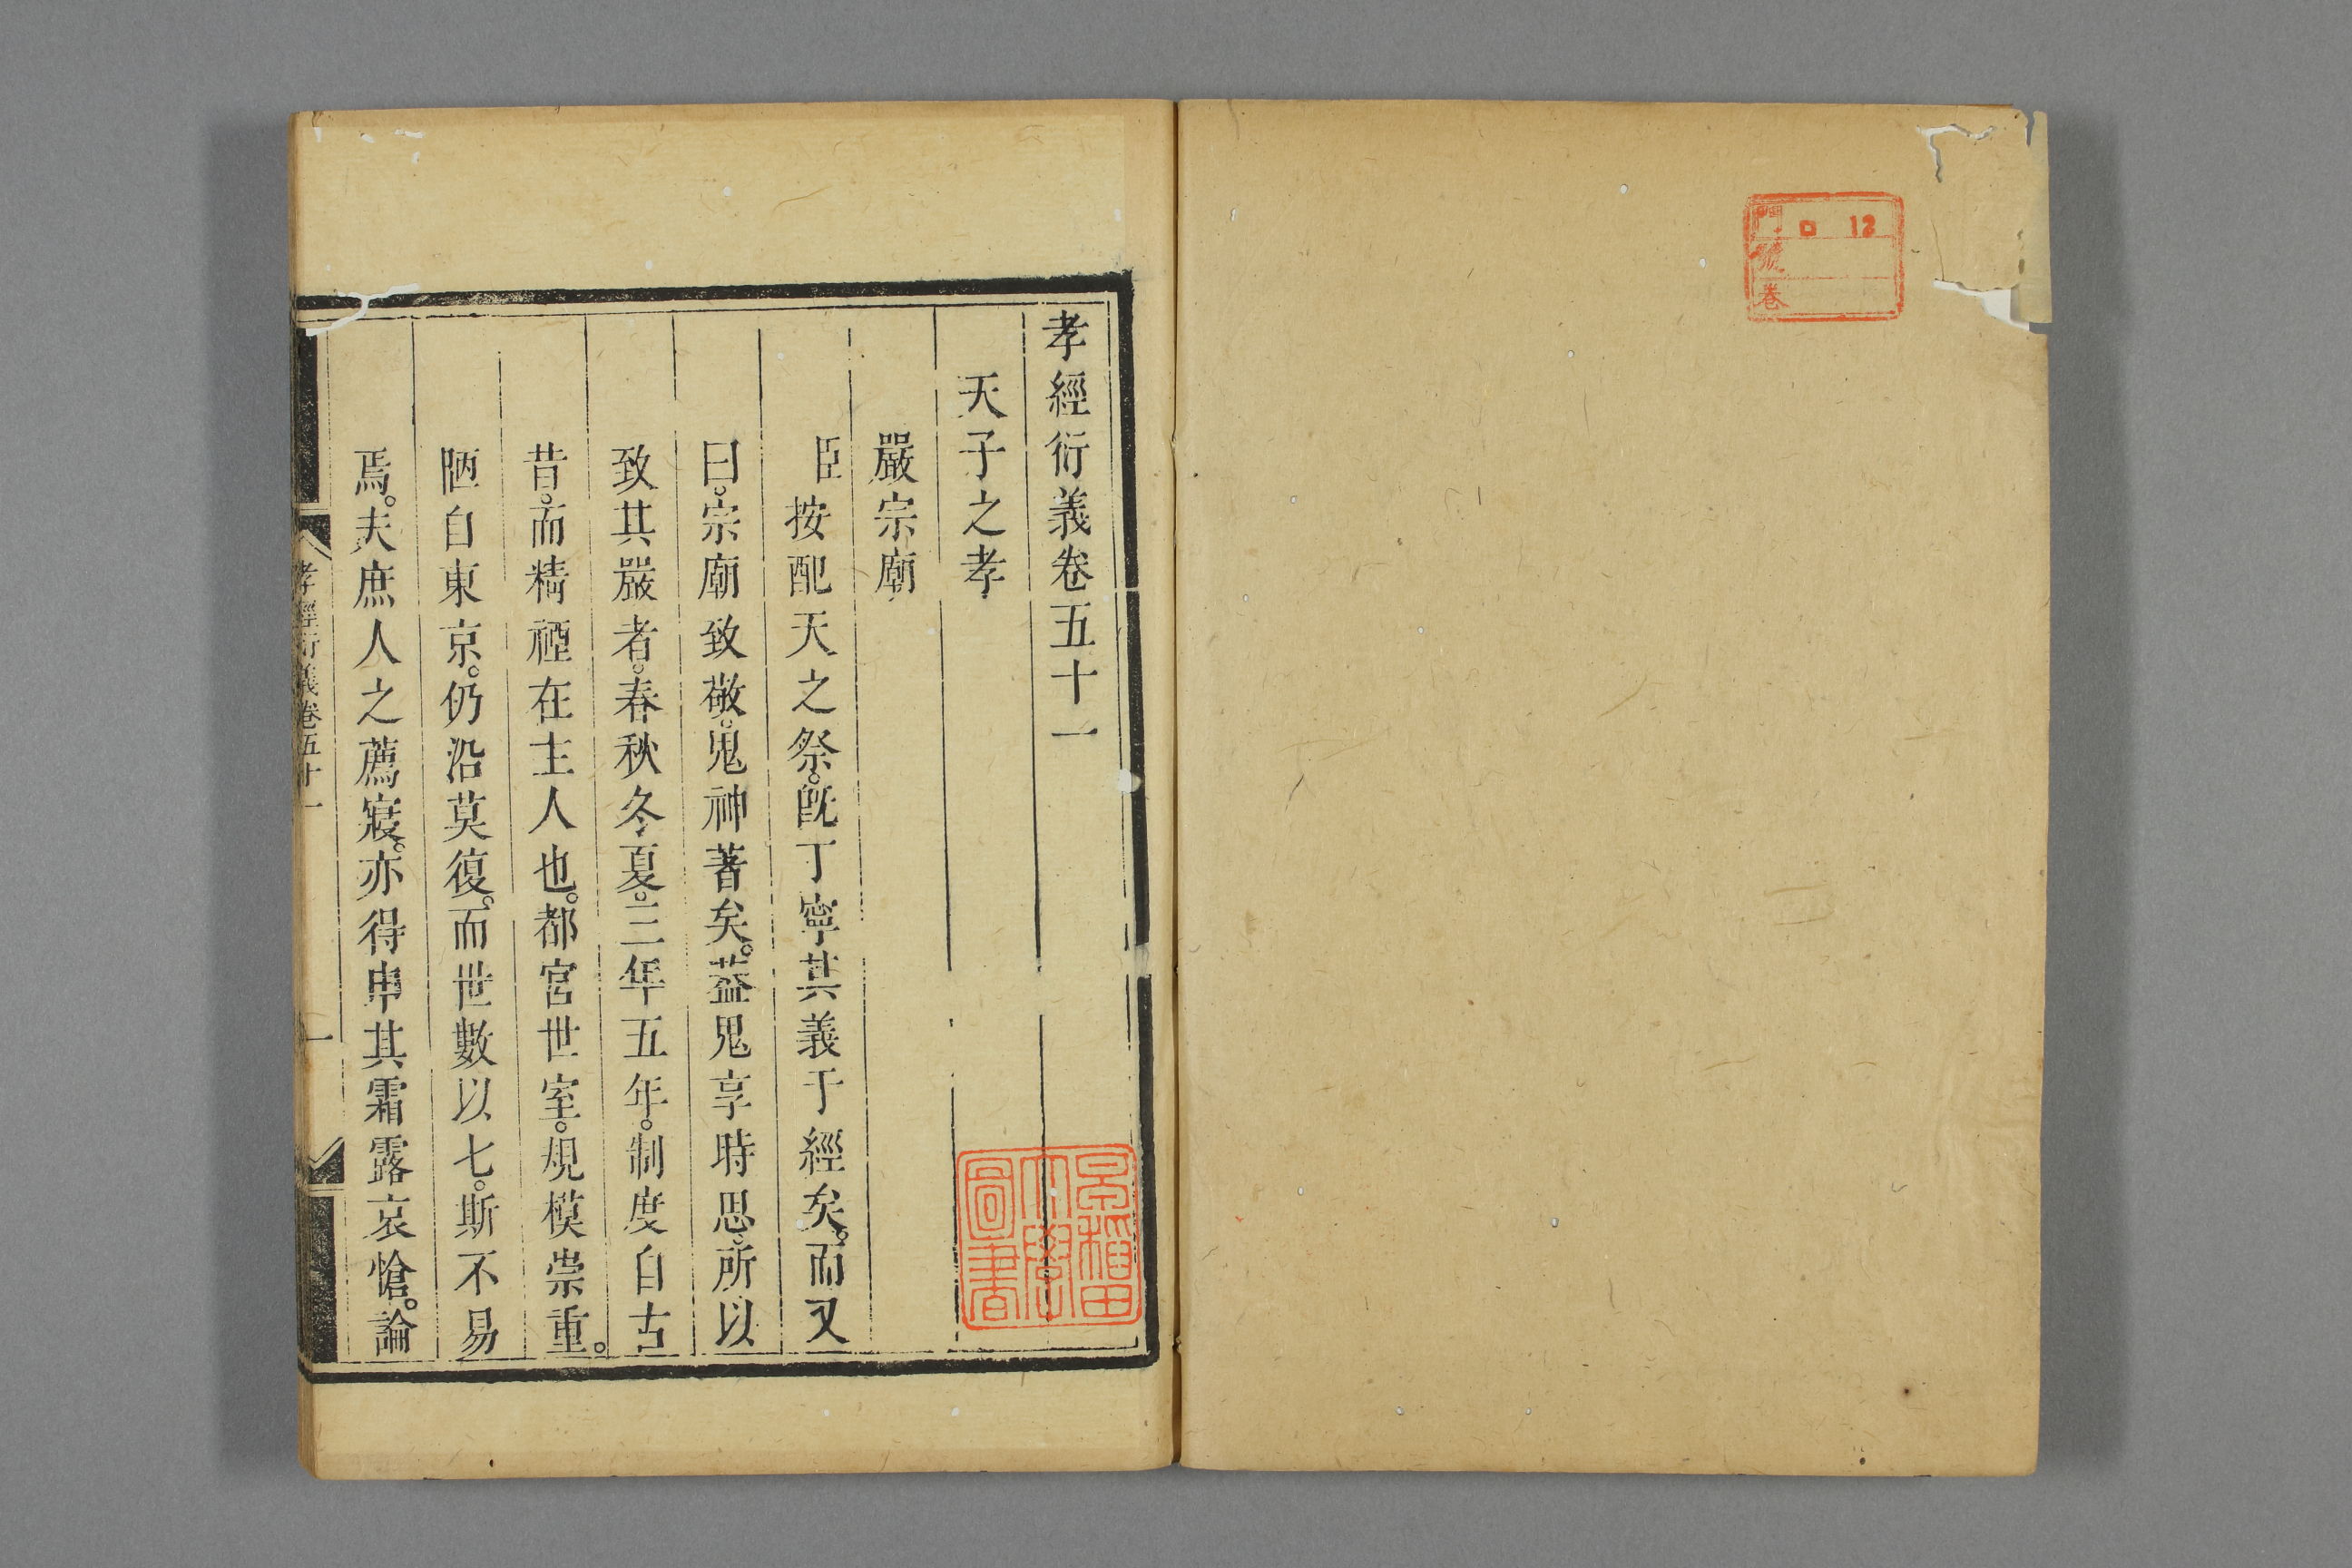 門 口 12
號
卷
孝經衍義卷五十一
天子之孝
嚴宗廟
臣按配天之祭。旣丁寧其義于經矣。而又
曰。宗廟致敬。鬼神著矣。葢鬼享時思。所以
致其嚴者。春秋冬夏。三年五年。制度自古
昔。而精禋在主人也。都宮世室。規模崇重。
陋自東京。仍沿莫復。而世數以七。斯不易
焉。夫庶人之薦寢。亦得申其霜露哀愴。論
孝經衍義卷五十一
一
早稻田
大學
圖書